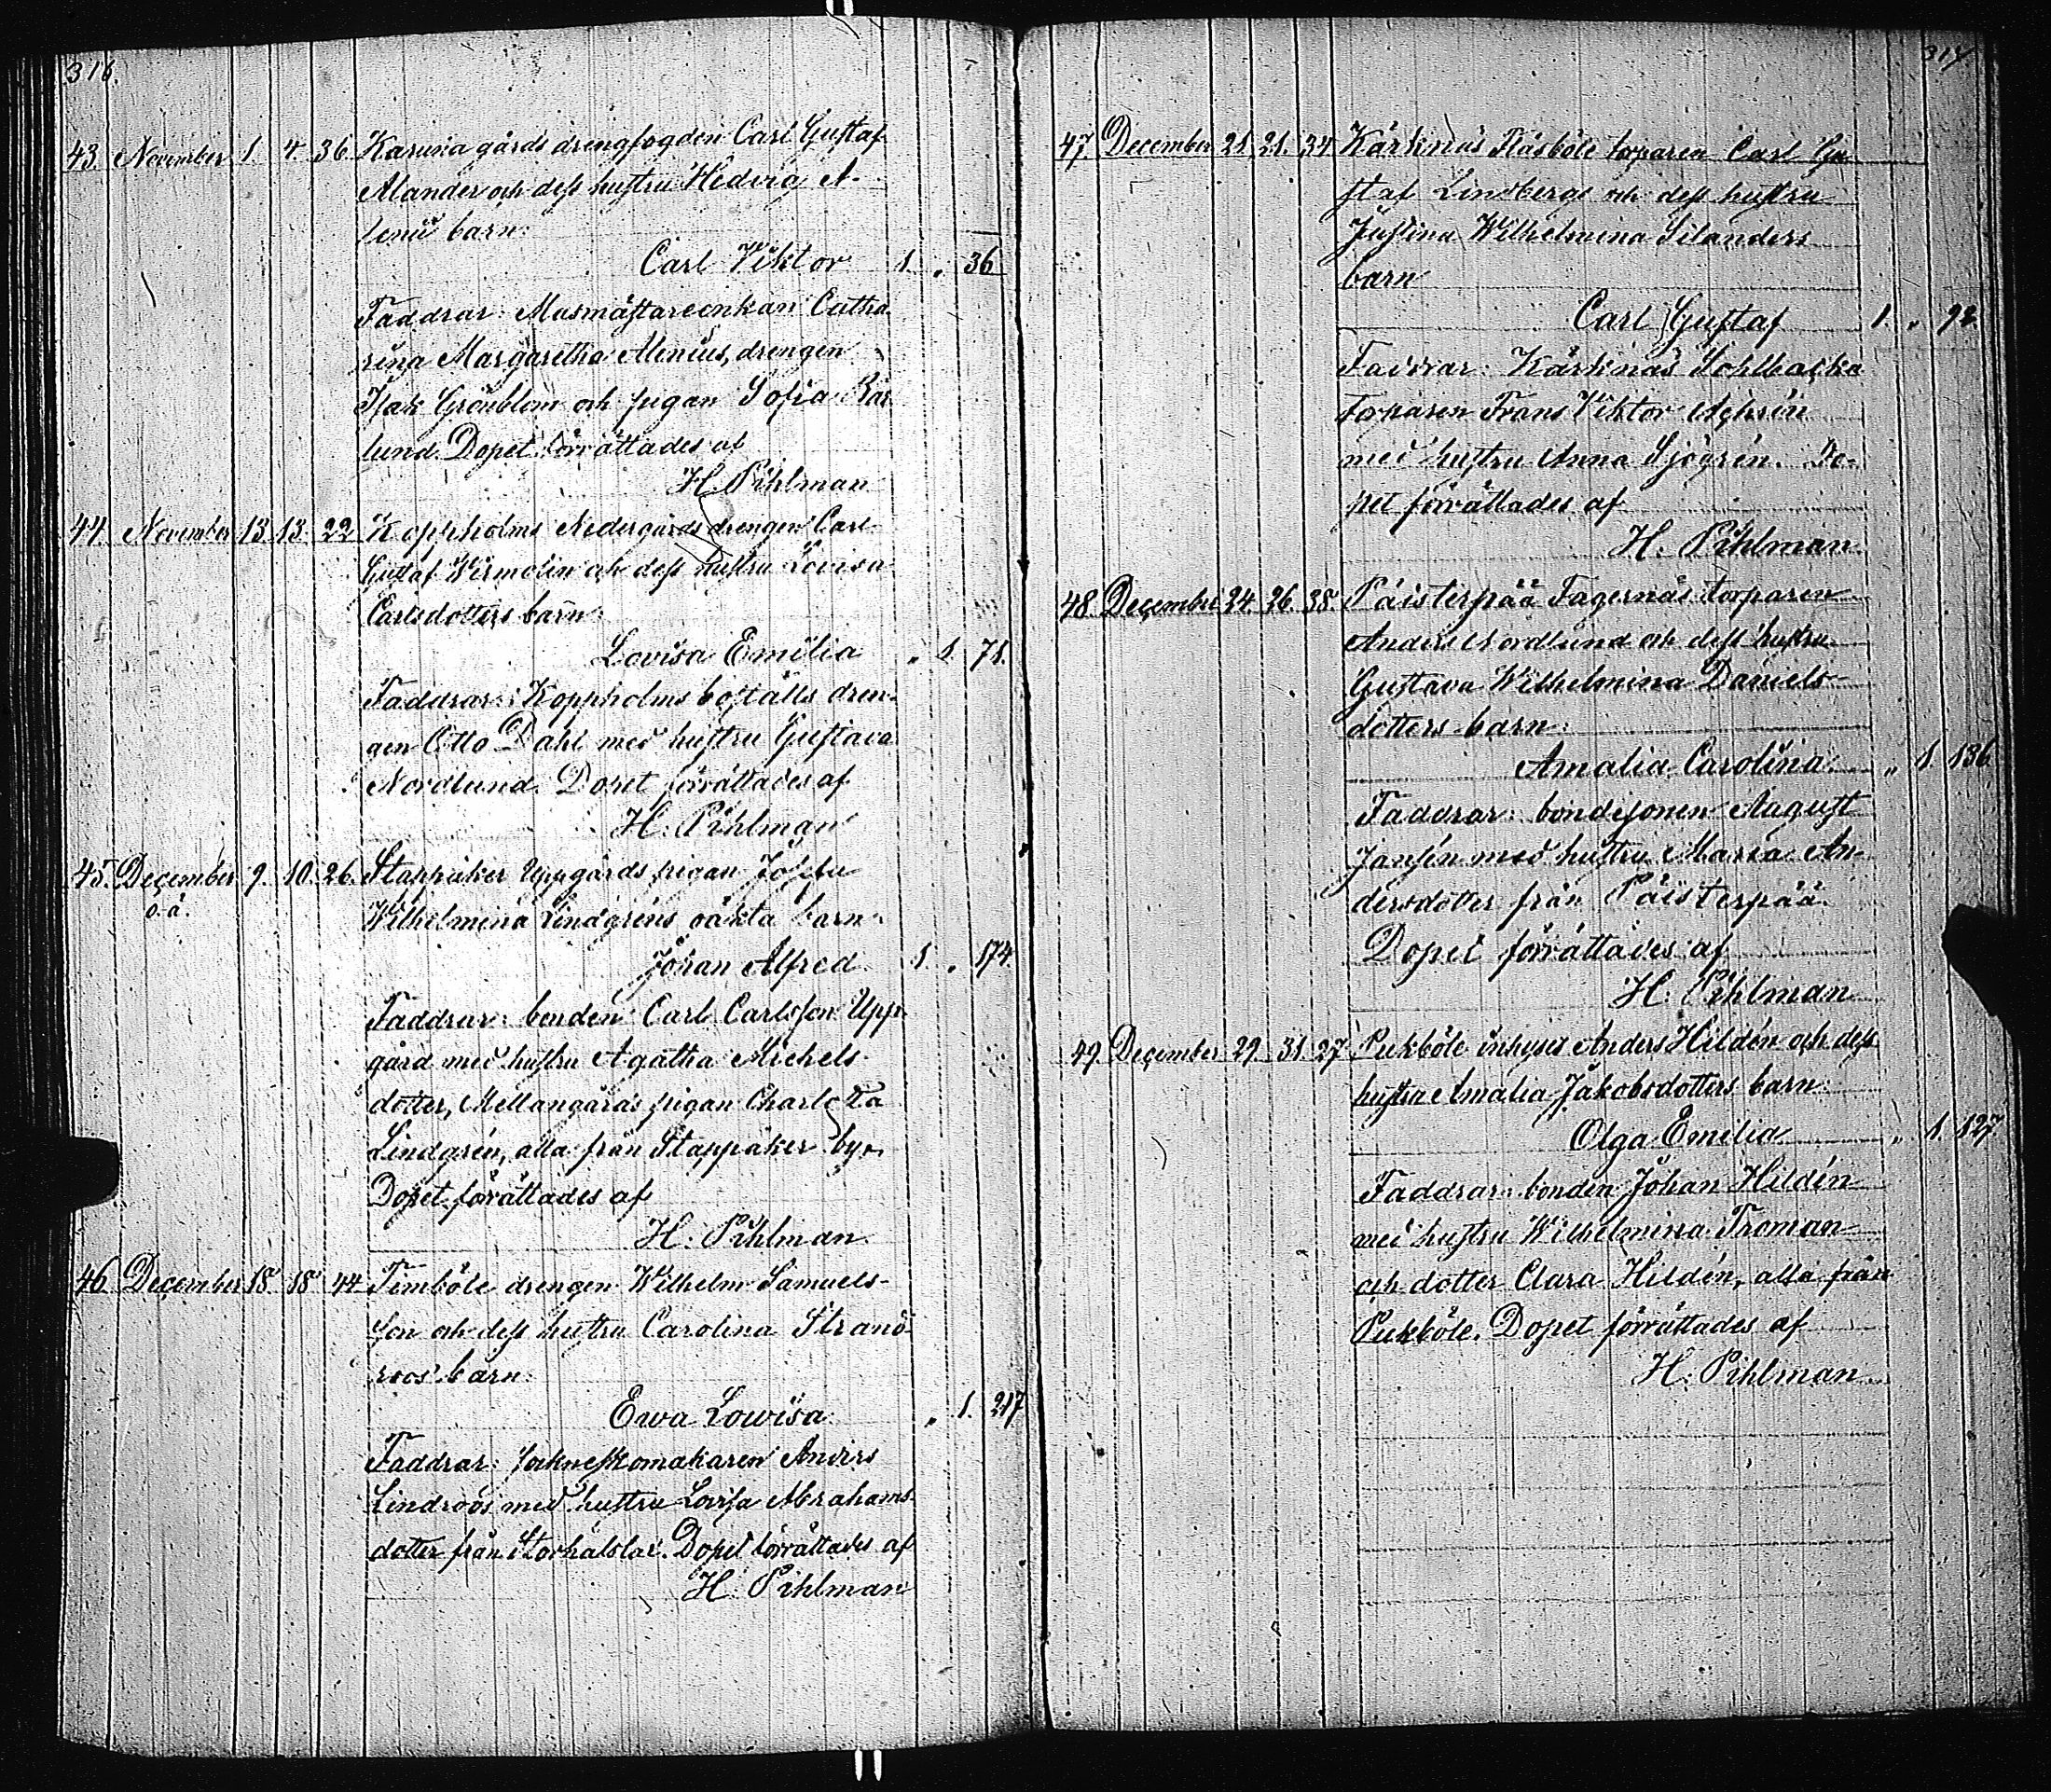 316.
43. November 1. 4. 36. Karuna gårds drengfogden Carl Gustaf
Alander och dess hustru Hedvig A-
lenii barn:
Carl Viktor 1 „ 36
Faddrar: Masmästareenkan Catha
rina Margaretha Alenius, drengen
Isak Grönblom och pigan Sofia
lund. Dopet förrättades af
H. Pihlman
44. November 13. 13. 22. Koppholms Nedergårds drengen Carl
Gustaf Wirmolin och dess hustru Lovisa
Carlsdotters barn:
Lovisa Emilia „ 1. 71.
Faddrar: Koppholms boställs dren-
gen Otto Dahl med hustru Gustava
Nordlund. Dopet förrättades af
H. Pihlman
45. December 9. 10. 26. Stappåker Uppgårds pigan Josefa
o.ä. Wilhelmina Lindgréns oäkta barn:
Johan Alfred 1 „ 174.
Faddrar: bonden Carl Carlsson Upp
gård med hustru Agatha Michels
dotter, Mellangårds pigan Charlotta
Lindgrén, alla från Stappåker by.
Dopet förrättades af
H. Pihlman
46. December 18. 18. 44. Timböle drengen Wilhelm Samuels-
son och dess hustru Carolina Strand-
roos barn:
Ewa Lowisa „ 1. 217
Faddrar: sockneskomakaren Anders
Lindroos med hustru Lovisa Abrahams-
dotter från Storhalslax. Dopet förrättades af
H. Pihlman
317
47. December 21. 21. 34. Kärknäs Fläsböle torparen Carl Gu
staf Lindbergs och dess hustru
Justina Wilhelmina Silanders
barn
Carl Gustaf 1. „ 92.
Faddrar: Kärknäs Sohlbacka
torparen Frans Viktor Achrén
med hustru Anna Sjögrén. Do-
pet förrättades af
H. Pihlman
48. December 24. 26. 38. Päisterpää Fagernäs torparen
Anders Nordlund och dess hustru
Gustava Wilhelmina Daniels-
dotters barn:
Amalia Carolina „ 1. 136
Faddrar: bondesonen August
Jansén med hustru Maria An-
dersdotter från Päisterpää.
Dopet förrättades af
H. Pihlman
49. December 29. 31. 27. Pukböle inhyses Anders Hildén och dess
hustru Amalia Jakobsdotters barn:
Olga Emilia „ 1. 127
Faddrar: bonden Johan Hildén
med hustru Wilhelmina Troman
och dotter Clara Hildén, alla från
Pukböle. Dopet förrättades af
H. Pihlman